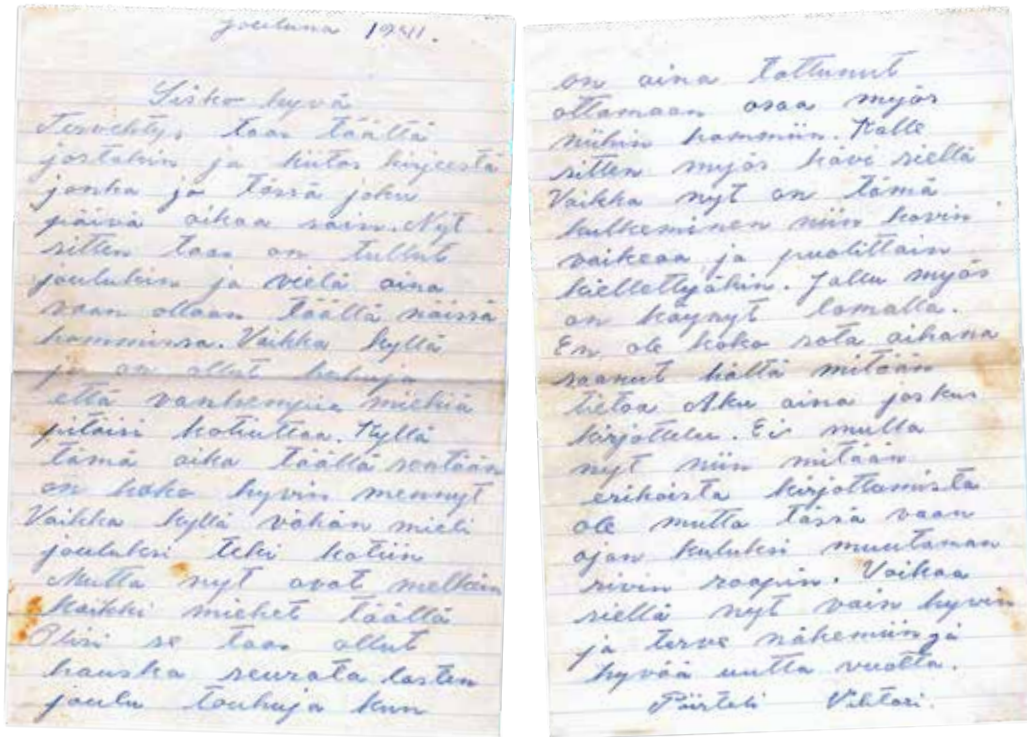 jouluna 1941.
Sisko hyvä
Tervehtys taas täältä
jostakin ja kiitos kirjeestä
jonka jo tässä joku
päivä aikaa sain. Nyt
sitten taas on tullut
joulukin ja vielä aina
vaan ollaan täällä näissä
hommissa. Vaikka kyllä
jo on ollut puhuja
että vanhempia miehiä
pitäisi kotiuttaa. Kyllä
tämä aika täällä sentään
on koko hyvin mennyt
Vaikka kyllä vähän mieli
jouluksi teki kotiin
Mutta nyt ovat melkein
kaikki miehet täällä
Olisi se taas ollut
hauska seurata lasten
joulu touhuja kun
on aina tottunut
ottamaan osaa myös
niihin hommiin. Kalle
sitten myös kävi sieltä
Vaikka nyt on tämä
kulkeminen niin kovin
vaikeaa ja puolittain
kiellettyäkin. Jallu myös
on käynyt lomalla.
En ole koko sota aikana
saanut hältä mitään
tietoa Aku aina joskus
kirjottelee. Ei mulla
nyt niin mitään
erikoista kirjottamista
ole mutta tässä vaan
ajan kuluksi muutaman
rivin raapin. Voikaa
siellä nyt vain hyvin
ja terve näkemiin ja
hyvää uutta vuotta.
Vihtori.